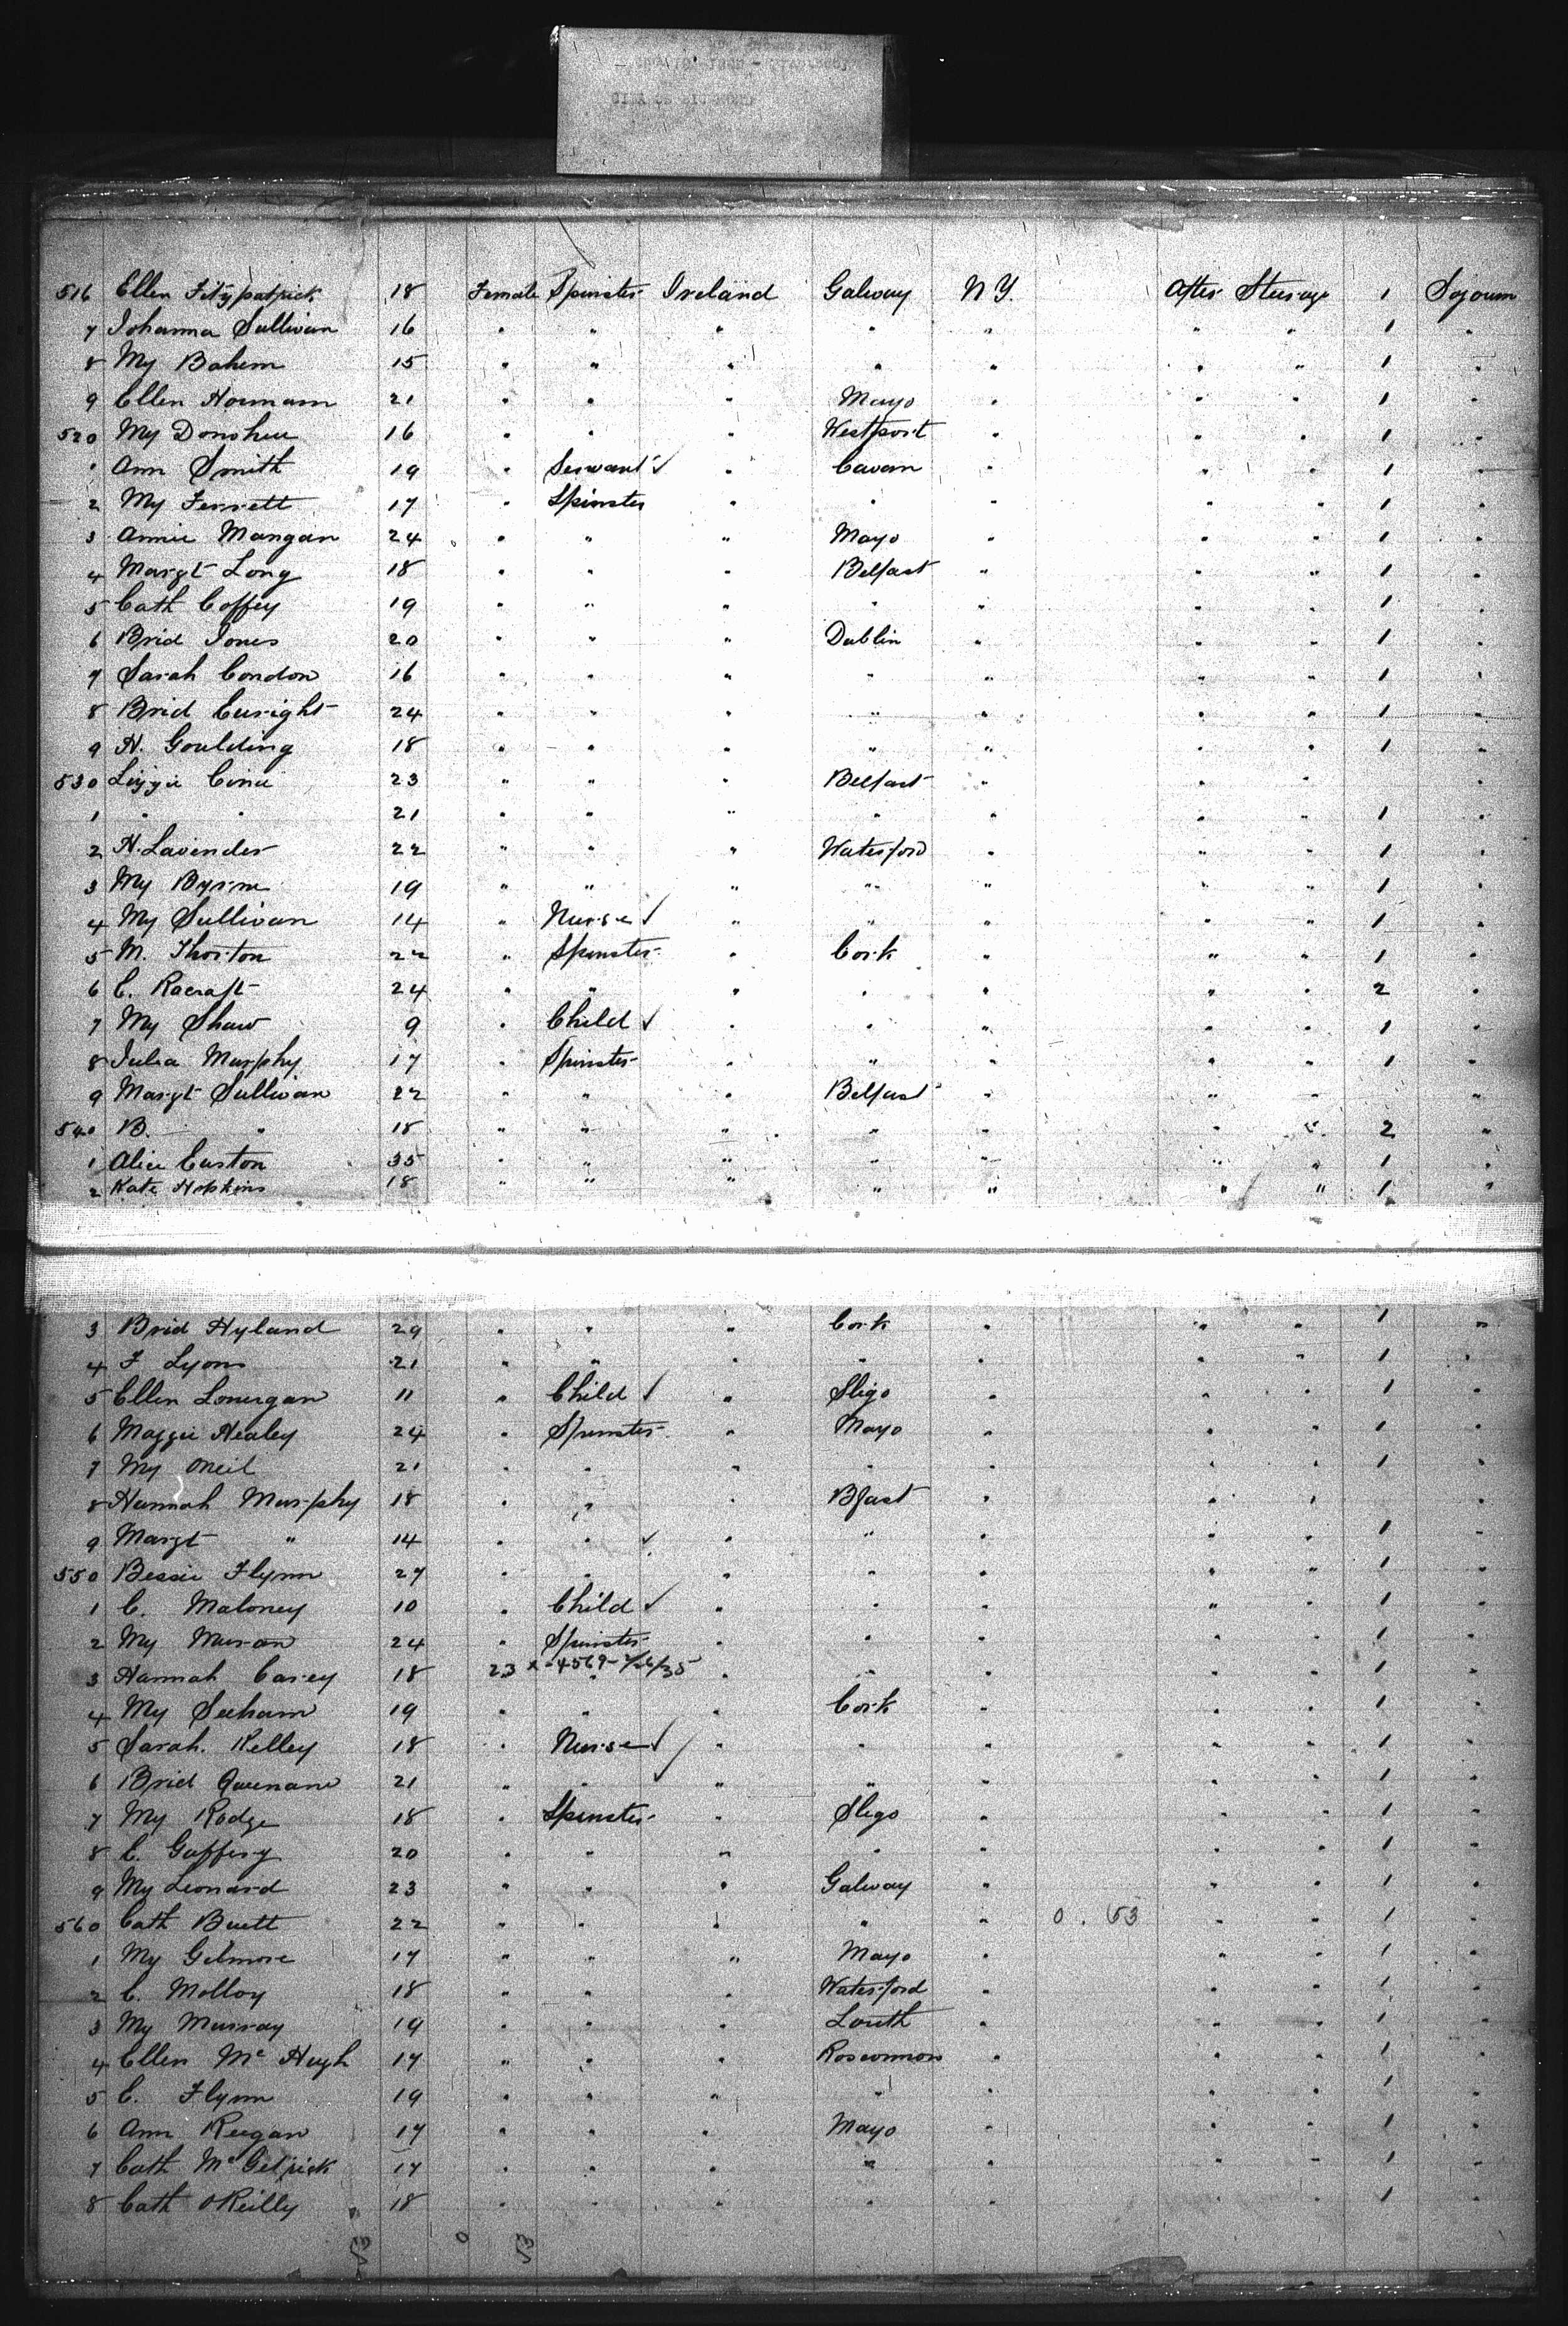 516 Ellen Fitzpatrick 18 Female Spinster Ireland Galway N Y. After Steerage 1 Sojourn
7 Johanna Sullivan 16 " " " " " " " 1 "
8 My Bohern 15 " " " " " " " 1 "
9 Ellen Hornman 21 " " " Mayo " " " 1 "
520 My Donohue 16 " " " Westport " " " 1 "
1 Ann Smith 19 " Servant ✓ " Cavan " " " 1 "
2 My Ferrett 17 " Spinster " " " " " 1 "
3 Annie Mangan 24 " " " Mayo " " " 1 "
4 Margt Long 18 " " " Belfast " " " 1 "
5 Cath Coffey 19 " " " " " " " 1 "
6 Brid Jones 20 " " " Dublin " " " 1 "
7 Sarah Condon 16 " " " " " " " 1 "
8 Brid Enright 24 " " " " " " " 1 "
9 H. Goulding 18 " " " " " " " 1 "
530 Lizzie 23 " " " Belfast " " " "
1 " " 21 " " " " " " " 1 "
2 H. Lavender 22 " " " Waterford " " " 1 "
3 My Byrne 19 " " " " " " " 1 "
4 My Sullivan 14 " Nurse ✓ " " " " " 1 "
5 M. Thorton 22 " Spinster " Cork " " " 1 "
6 C. Racraft 24 " " " " " " " 2 "
7 My Shaw 9 " Child ✓ " " " " " 1 "
8 Julia Murphy 17 " Spinster " " " " " 1 "
9 Margt Sullivan 22 " " " Belfast " " " "
540 B. " 18 " " " " " " " 2 "
1 Alice Easton 35 " " " " " " " 1 "
2 Kate Hopkins 18 " " " " " " " 1 "
3 Brid Hyland 29 " " " Cork " " " 1 "
4 F Lyons 21 " " " " " " " 1 "
5 Ellen Lonergan 11 " Child ✓ " Sligo " " " 1 "
6 Maggie Healey 24 " Spinster " Mayo " " " 1 "
7 My ONeil 21 " " " " " " " 1 "
8 Hannah Murphy 18 " " " Bfast " " " "
9 Margt " 14 " " ✓ " " " " " 1 "
550 Bessie Flynn 27 " " " " " " " 1 "
1 C. Maloney 10 " Child ✓ " " " " " 1 "
2 My Muran 24 " Spinster " " " " " 1 "
3 Hannah Carey 18 23 x-4569- " " " " " " 1 "
4 My Seeham 19 " " " Cork " " " 1 "
5 Sarah. Kelley 18 " Nurse ✓ " " " " " 1 "
6 Brid Queenane 21 " " ✓ " " " " " 1 "
7 My Rodge 18 " Spinster " Sligo " " " 1 "
8 C. Gaffery 20 " " " " " " " 1 "
9 My Leonard 23 " " " Galway " " " 1 "
560 Cath Buett 22 " " " " " 0 . 53 " " 1 "
1 My Gilmore 17 " " " Mayo " " " 1 "
2 C. Molloy 18 " " " Waterford " " " 1 "
3 My Murray 19 " " " Louth " " " 1 "
4 Ellen Mc Hugh 17 " " " Roscommon " " " 1 "
5 C. Flynn 19 " " " " " " " 1 "
6 Ann Reegan 17 " " " Mayo " " " 1 "
7 Cath McGetrick 17 " " " " " " " 1 "
8 Cath OReilly 18 " " " " " " " 1 "